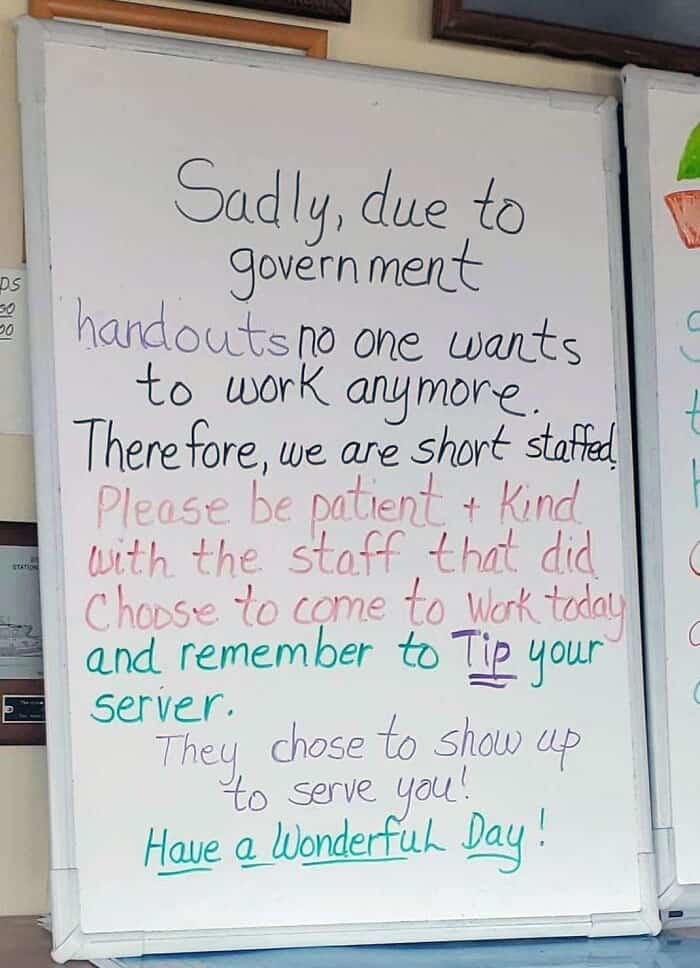 Sadly, due to
government
handouts no one wants
to work anymore.
Therefore, we are short staffed.
Please be patient + Kind
with the staff that did
Choose to come to work today
and remember to Tip your
server.
They chose to show up
to serve you!
Have a Wonderful Day!